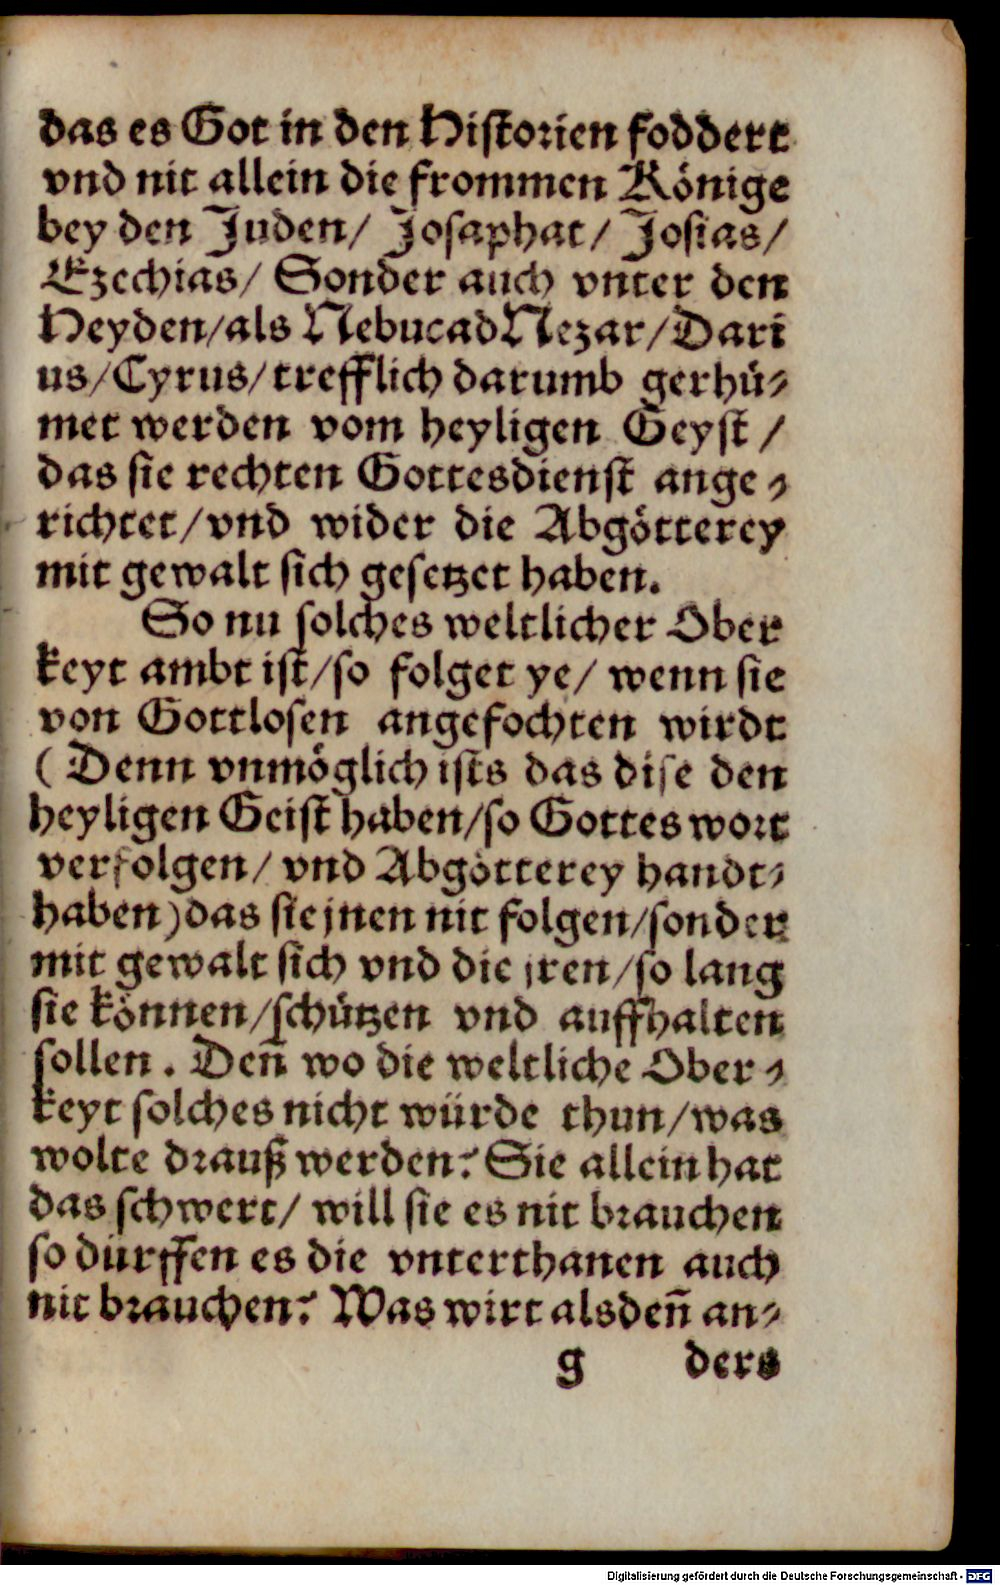 das es Got in den Historien foddert
vnd nit allein die frommen Könige
bey den Juden/ Josaphat/ Josias/
Ezechias/ Sonder auch vnter den
Heyden/als NebucadNezar/Dari
us/Cyrus/trefflich darumb gerhü-
met werden vom heyligen Geyst /
das sie rechten Gottesdienst ange-
richtet/vnd wider die Abgötterey
mit gewalt sich gesetzet haben.
So nu solches weltlicher Ober
keyt ambt ist/so folget ye/ wenn sie
von Gottlosen angefochten wirdt
( Denn vnmöglich ists das dise den
heyligen Geist haben/so Gottes wort
verfolgen/ vnd Abgötterey handt-
haben)das sie jnen nit folgen/sonder
mit gewalt sich vnd die jren/so lang
sie können/schützen vnd auffhalten
sollen . Deñ wo die weltliche Ober-
keyt solches nicht würde thun/was
wolte drauß werden? Sie allein hat
das schwert/ will sie es nit brauchen
so dürffen es die vnterthanen auch
nit brauchen? Was wirt alsdeñ an-
g ders
Digitalisierung gefördert durch die Deutsche Forschungsgemeinschaft - DFG